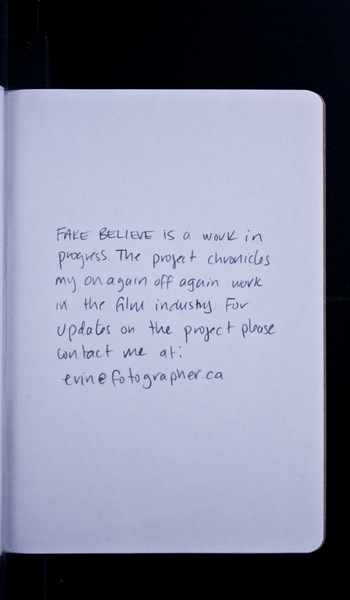 FAKE BELIEVE is a work in
progress. The project chronicles
my on again off again work
in the film industry. For
updates on the project please
contact me at:
erin@fotographer.ca